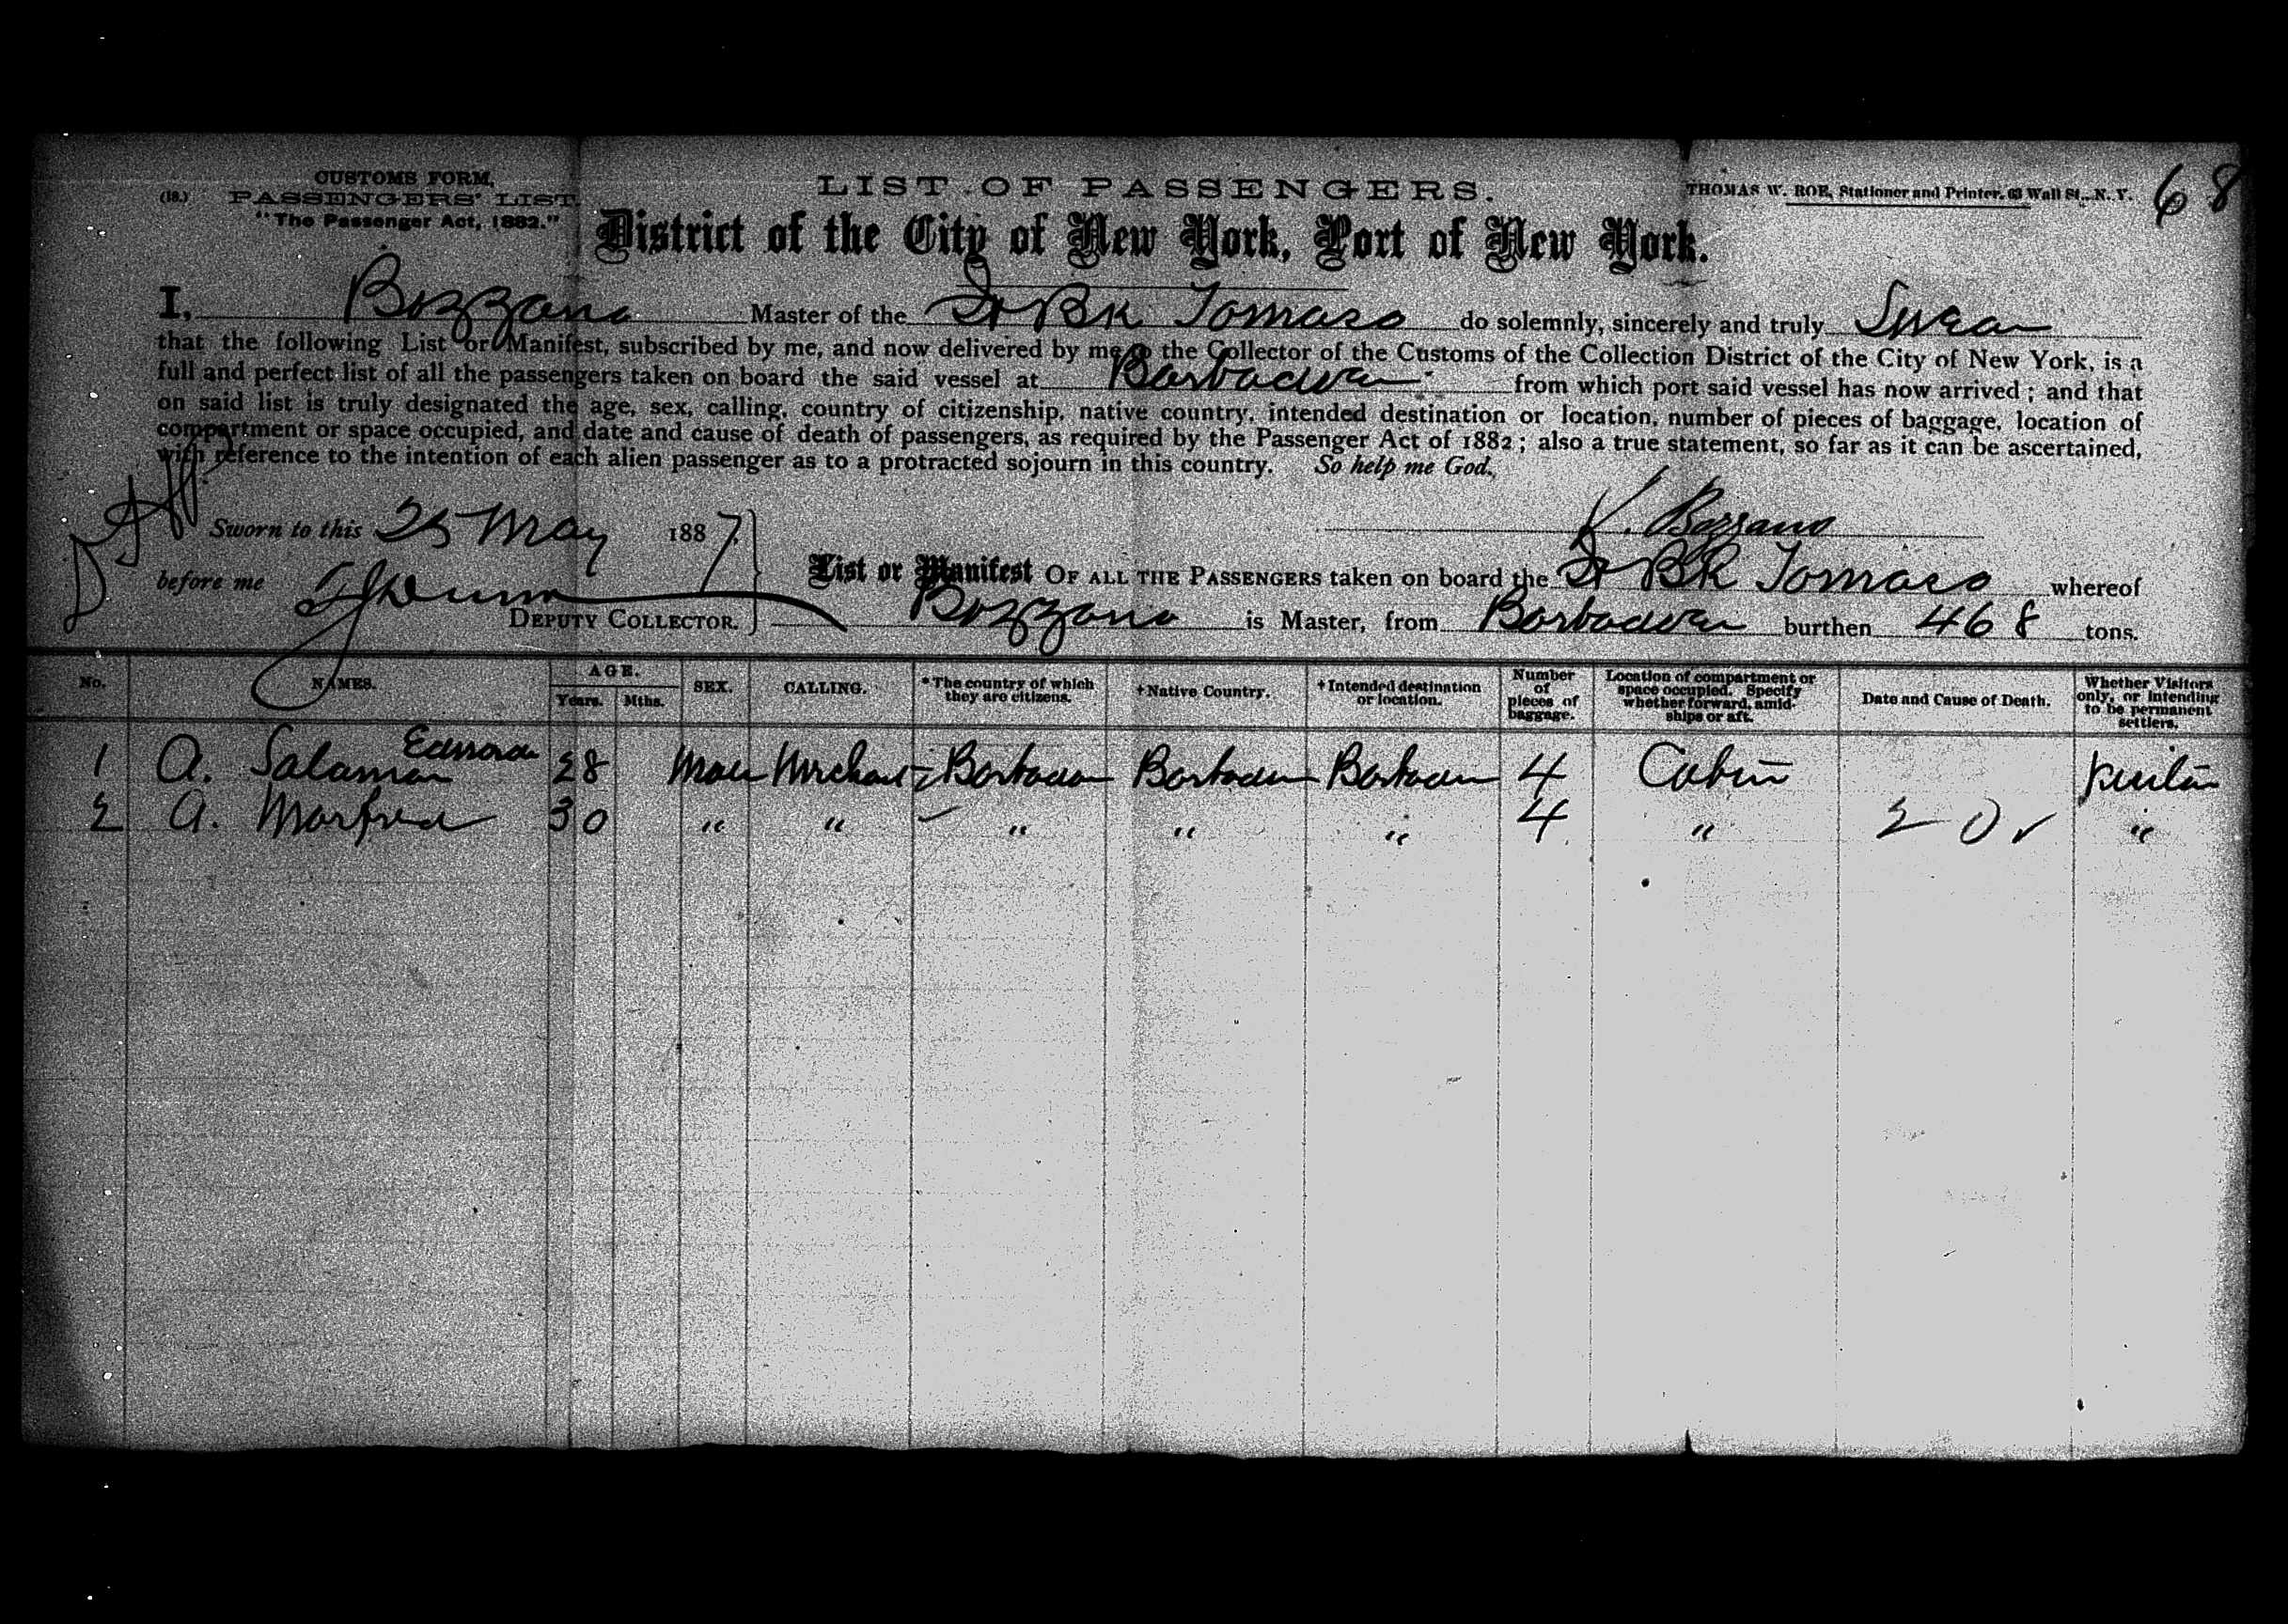 CUSTOMS FORM,
(18.) PASSENGERS' LIST.
"The Passenger Act, 1882."
LIST OF PASSENGERS.
THOMAS W. ROE, Stationer and Printer, 63 Wall St., N. Y.
68
District of the City of New York, Port of New York.
I, Bozzano Master of the It Bk Tomaso do solemnly, sincerely and truly Swear
that the following List or Manifest, subscribed by me, and now delivered by me to the Collector of the Customs of the Collection District of the City of New York, is a
full and perfect list of all the passengers taken on board the said vessel at Barbadoes from which port said vessel has now arrived; and that
on said list is truly designated the age, sex, calling, country of citizenship, native country, intended destination or location, number of pieces of baggage, location of
compartment or space occupied, and date and cause of death of passengers, as required by the Passenger Act of 1882; also a true statement, so far as it can be ascertained,
with reference to the intention of each alien passenger as to a protracted sojourn in this country. So help me God.
Sworn to this 25 May 1887.
Bozzano
before me
DEPUTY COLLECTOR.
List or Manifest OF ALL THE PASSENGERS taken on board the It Bk Tomaso whereof
Bozzano is Master, from Barbadoes burthen 468 tons.
No. NAMES. AGE. Years. Mths. SEX. CALLING. *The country of which they are citizens. †Native Country. †Intended destination or location. Number of pieces of baggage. Location of compartment or space occupied. Specify whether forward, amidships or aft. Date and Cause of Death. Whether Visitors only, or intending to be permanent settlers.
1 A. Salaman 28 Male Merchant Barbados Barbados Barbados 4 Cabin
2 A. 30 " " " " " 4 " 2 0 ✓ "